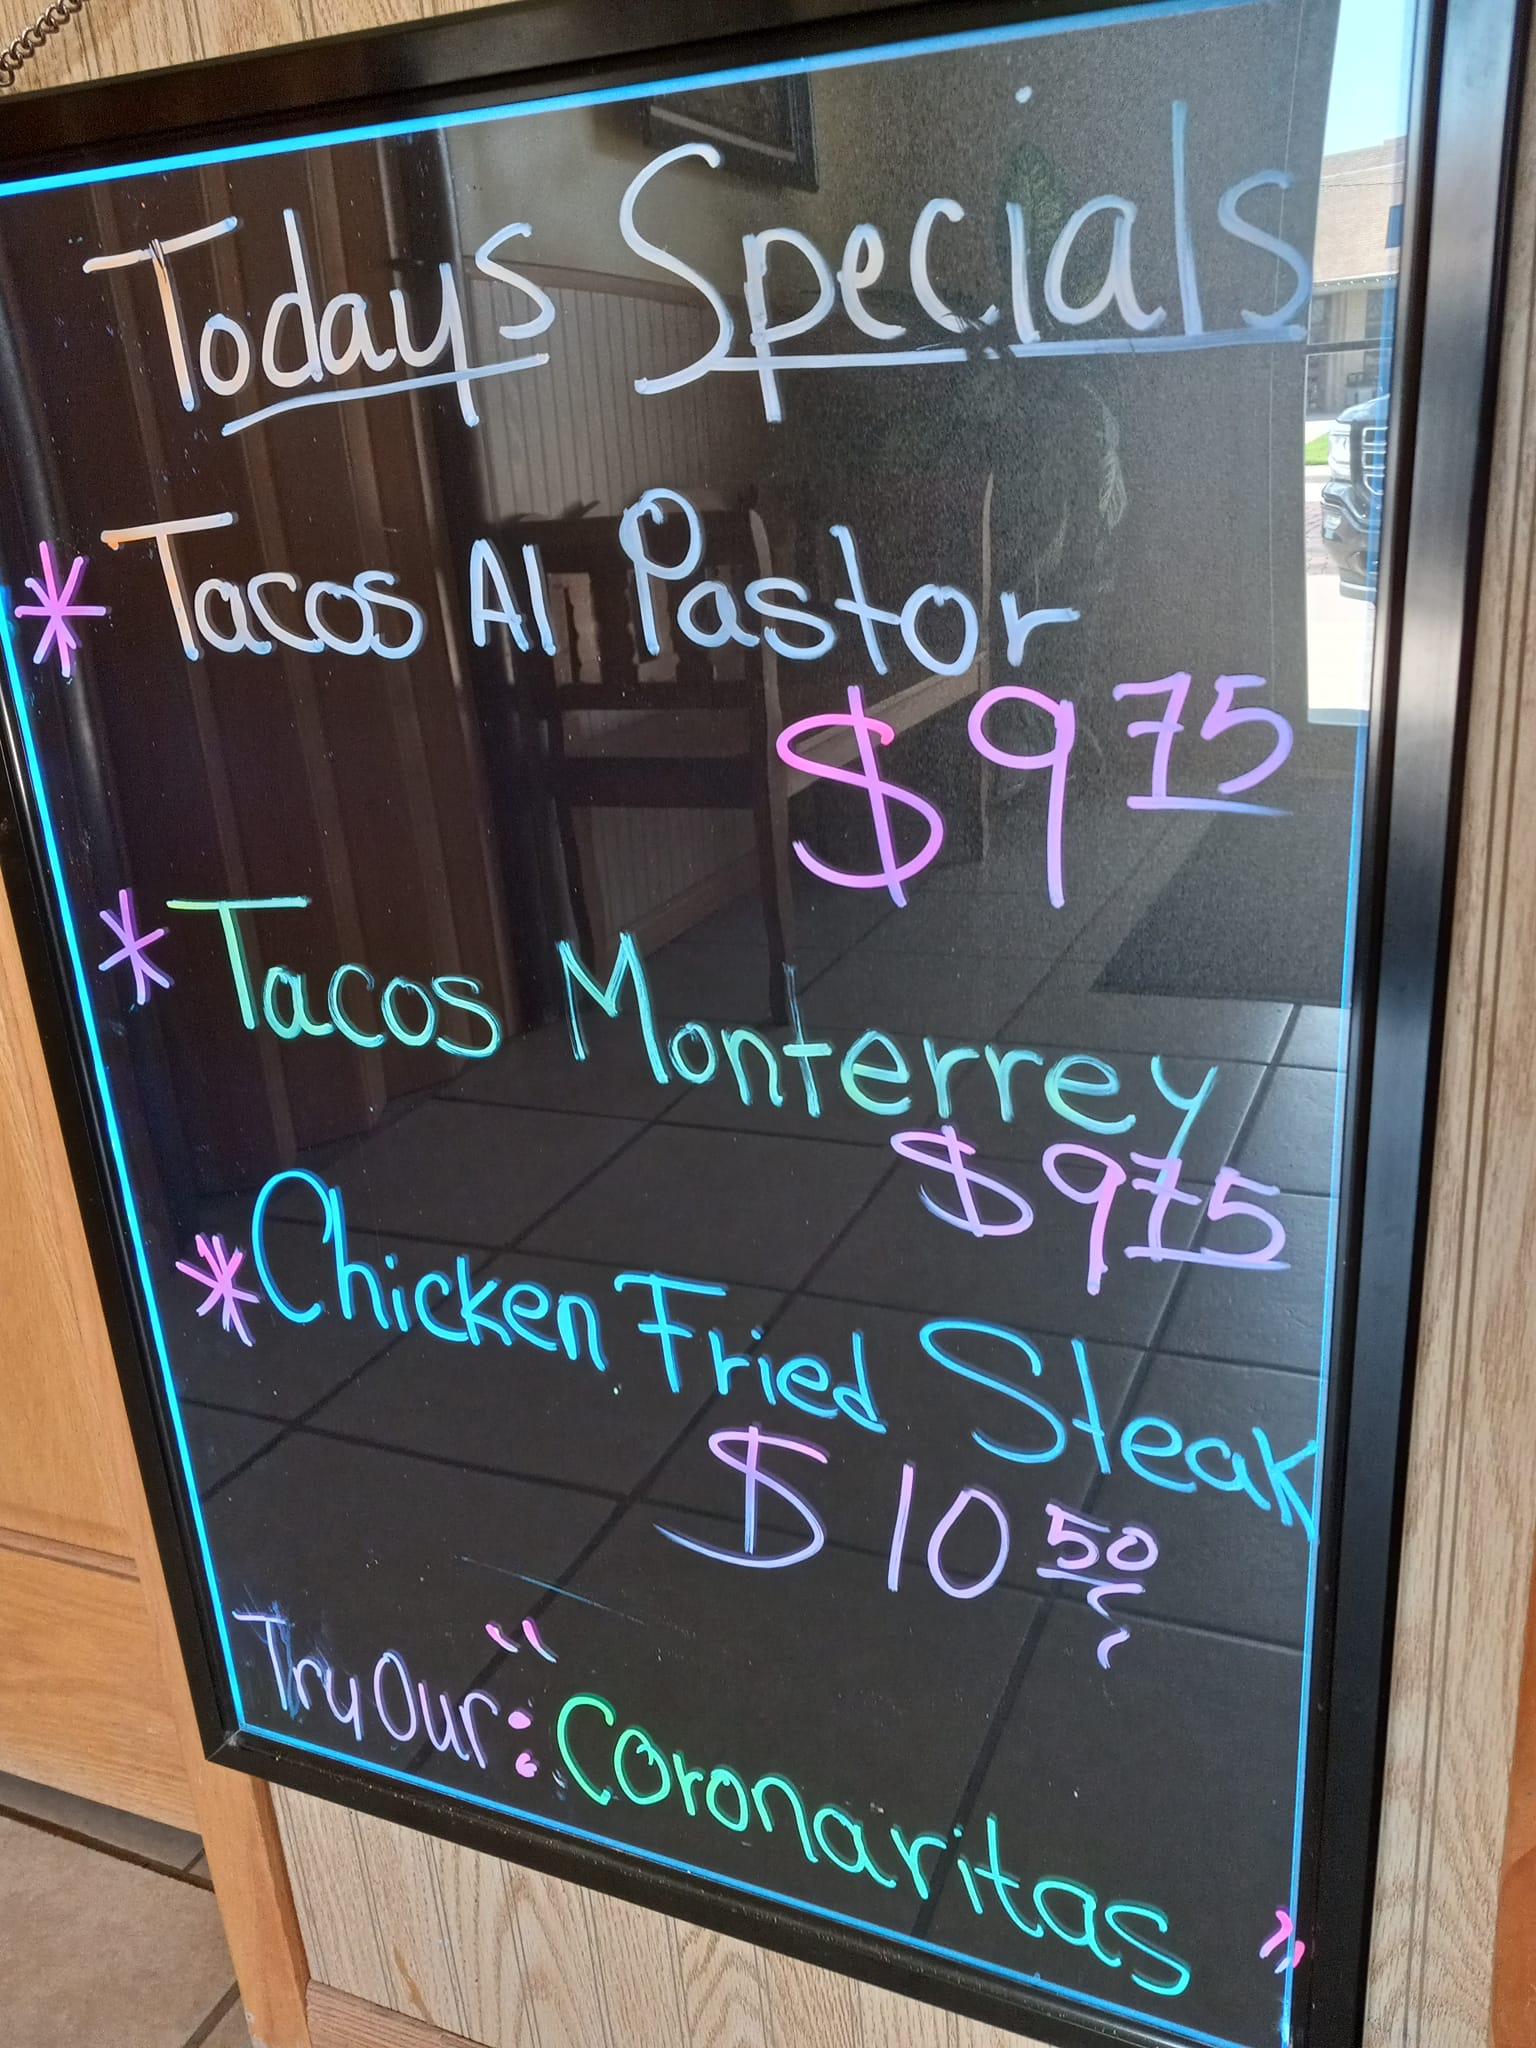 Todays Specials
* Tacos Al Pastor
$9 75
* Tacos Monterrey
$9 75
* Chicken Fried Steak
$10 50
Try Our: "Coronaritas"